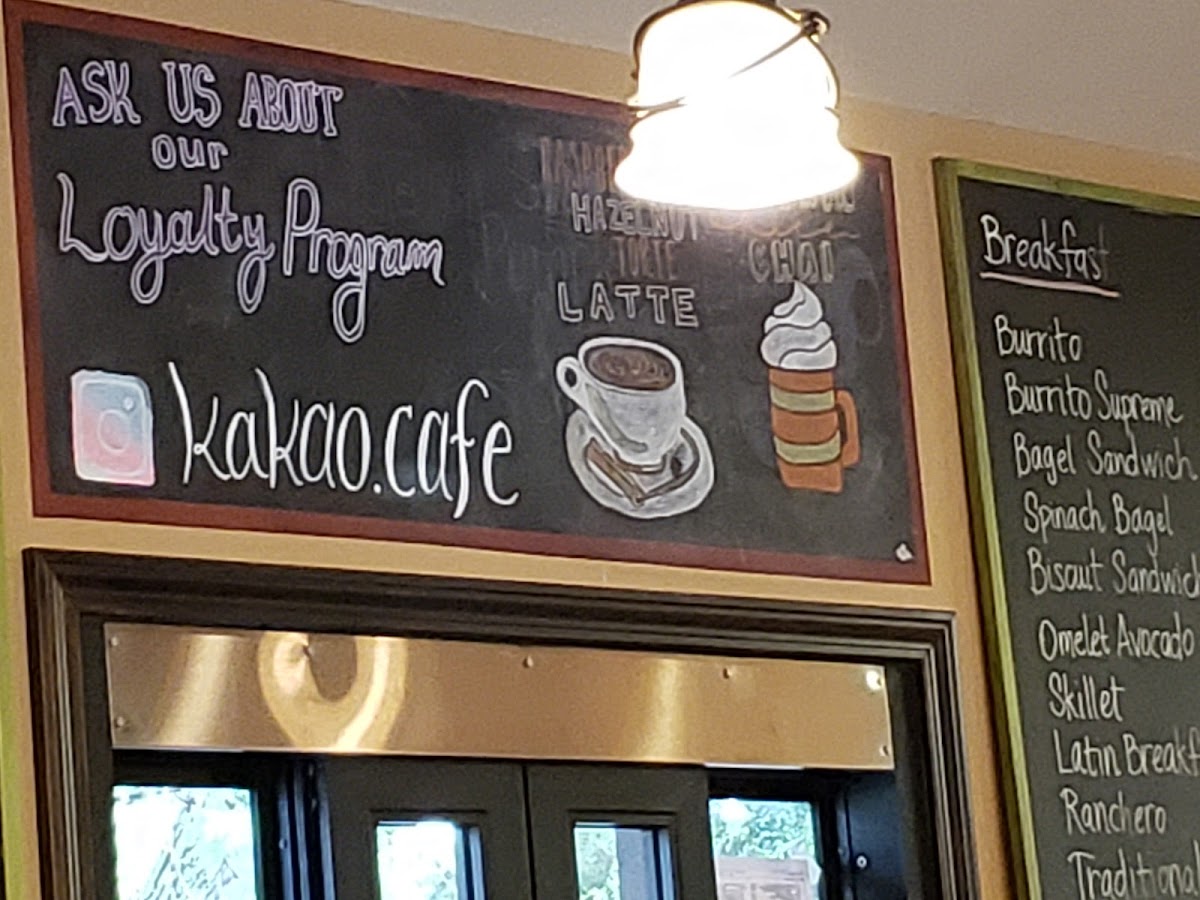 ASK US ABOUT
our
Loyalty Program
kakao.cafe
HAZELNUT
LATTE
CHAI
Breakfast
Burrito
Burrito Supreme
Bagel Sandwich
Spinach Bagel
Biscuit Sandwich
Omelet Avocado
Skillet
Latin Breakf
Ranchero
Traditional